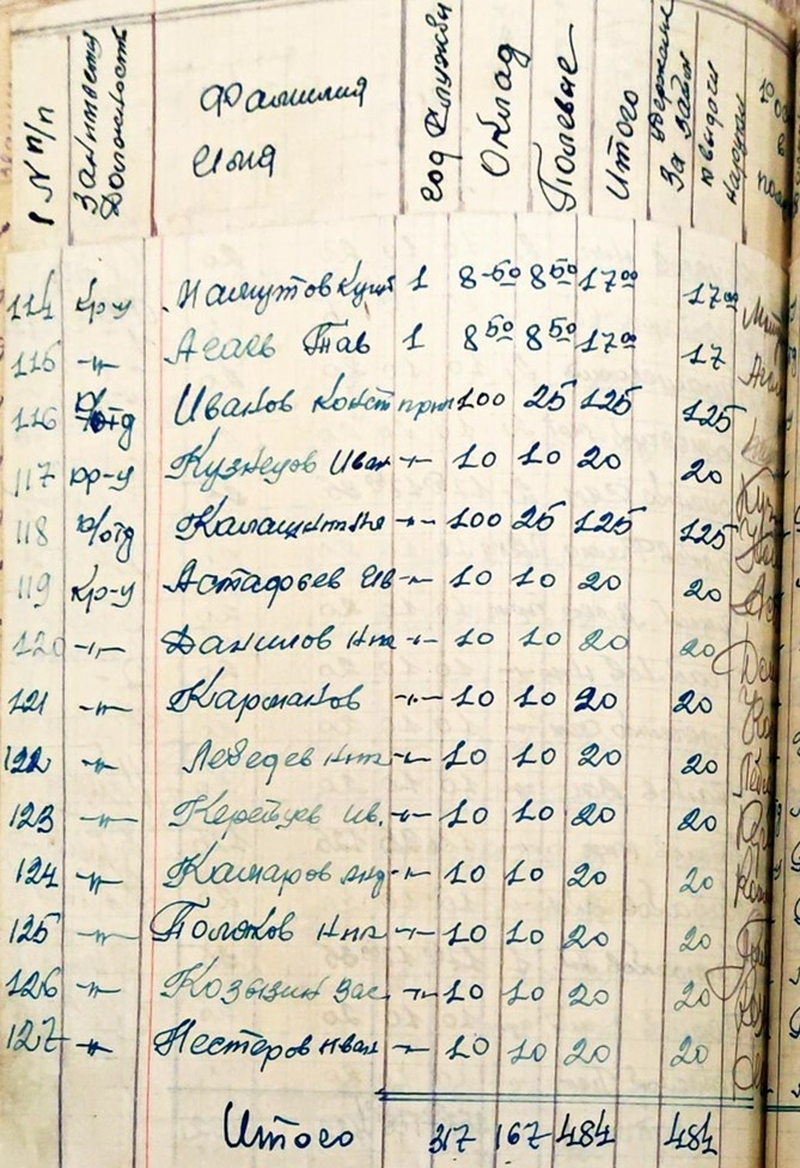 № п/п Занимаем. Должность Фамилия Имя год Службы Оклад Полевые Итого За Заём к выдачи на руки
114 кр-ц 1 8-50 8 50 17 00 17 00
115 -"- Агаев Тав 1 8 50 8 50 17 00 17
116 к/отд Иванов Конст прим 100 25 125 125
117 кр-ц Кузнецов Иван -"- 10 10 20 20
118 к/отд -"- 100 25 125 125
119 кр-ц Астафьев Ив -"- 10 10 20 20
120 -"- Данилов Ник -"- 10 10 20 20
121 -"- Карманов -"- 10 10 20 20
122 -"- Лебедев Ник -"- 10 10 20 20
123 -"- Ив. -"- 10 10 20 20
124 -"- Камаров Анд -"- 10 10 20 20
125 -"- Ник -"- 10 10 20 20
126 -"- Вас -"- 10 10 20 20
127 -"- Нестеров Иван -"- 10 10 20 20
Итого 317 167 484 484